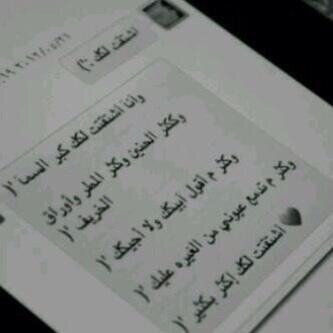 اشتقت لك :")
وأنا اشتقت لك كبر السما :"(
وكثر الحنين وكثر المطر وأوراق
الخريف :"(
وكثر م أقول أبيك ولا أجيك :"(
وكثر م تدمع عيوني من الغيره عليك :"(
اشتقت لك اكثر بكثير :"(